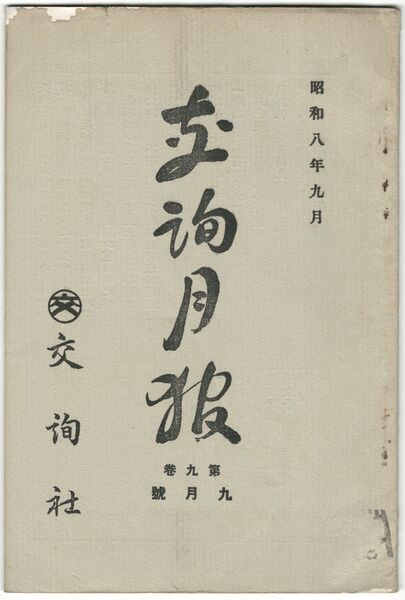 昭和八年九月
交詢月報
第九卷
九月號
交
交詢社